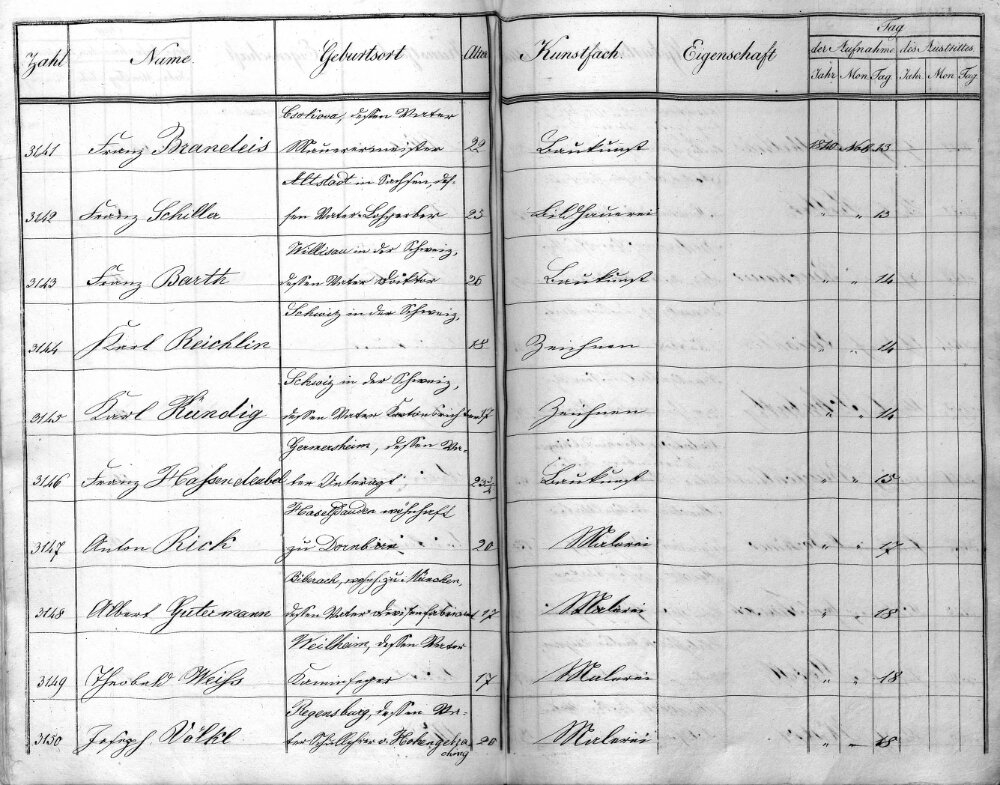 Zahl Name. Geburtsort Alter Kunstfach. Eigenschaft Tag
der Aufnahme des Austrittes
Jahr Mon Tag Jahr. Mon Tag
dessen Vater
3141 Franz Brandeis Maurermeister 22 Baukunst 1840 Nov 13
Altstadt in Sachsen, des-
3142 Franz Schilla sen Vater Lohgerber 23 Bildhauerei " " 13
Willisau in der Schweiz,
3143 Franz Barth dessen Vater Doktor 26 Baukunst " " 14
Schwiz in der Schweiz,
3144 Karl Reichlin 18 Zeichnen " " 14
Schwiz in der Schweiz,
3145 Karl Kündig dessen Vater Zeichnen " " 14
Germersheim, dessen Va-
3146 Franz Hassendeubel ter 23 Baukunst " " 15
wohnhaft
3147 Anton Rick zu Dornbirn 20 Malerei " " 17
Biberach, wohnh. zu München,
3148 Albert Gutermann dessen Vater 17 Malerei " " 18
Weilheim, dessen Vater
3149 Theobald Weiss Kaminfeger 17 Malerei " " 18
Regensburg, dessen Va-
3150 Joseph Völkl ter Schullehrer v. 20 Malerei " " 18